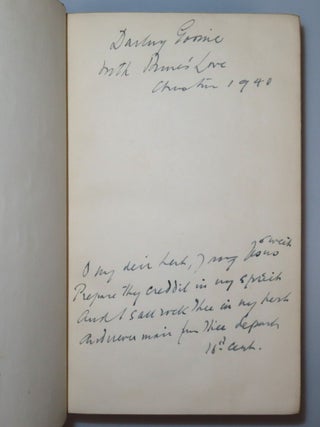 Darling Goosie
with          Love
Christmas 1940
O my deir hert,      my     sweit
Prepare thy creddil in my spreit
And I sall rock thee in my hert
And never mair fra thee depart
16th Cent.